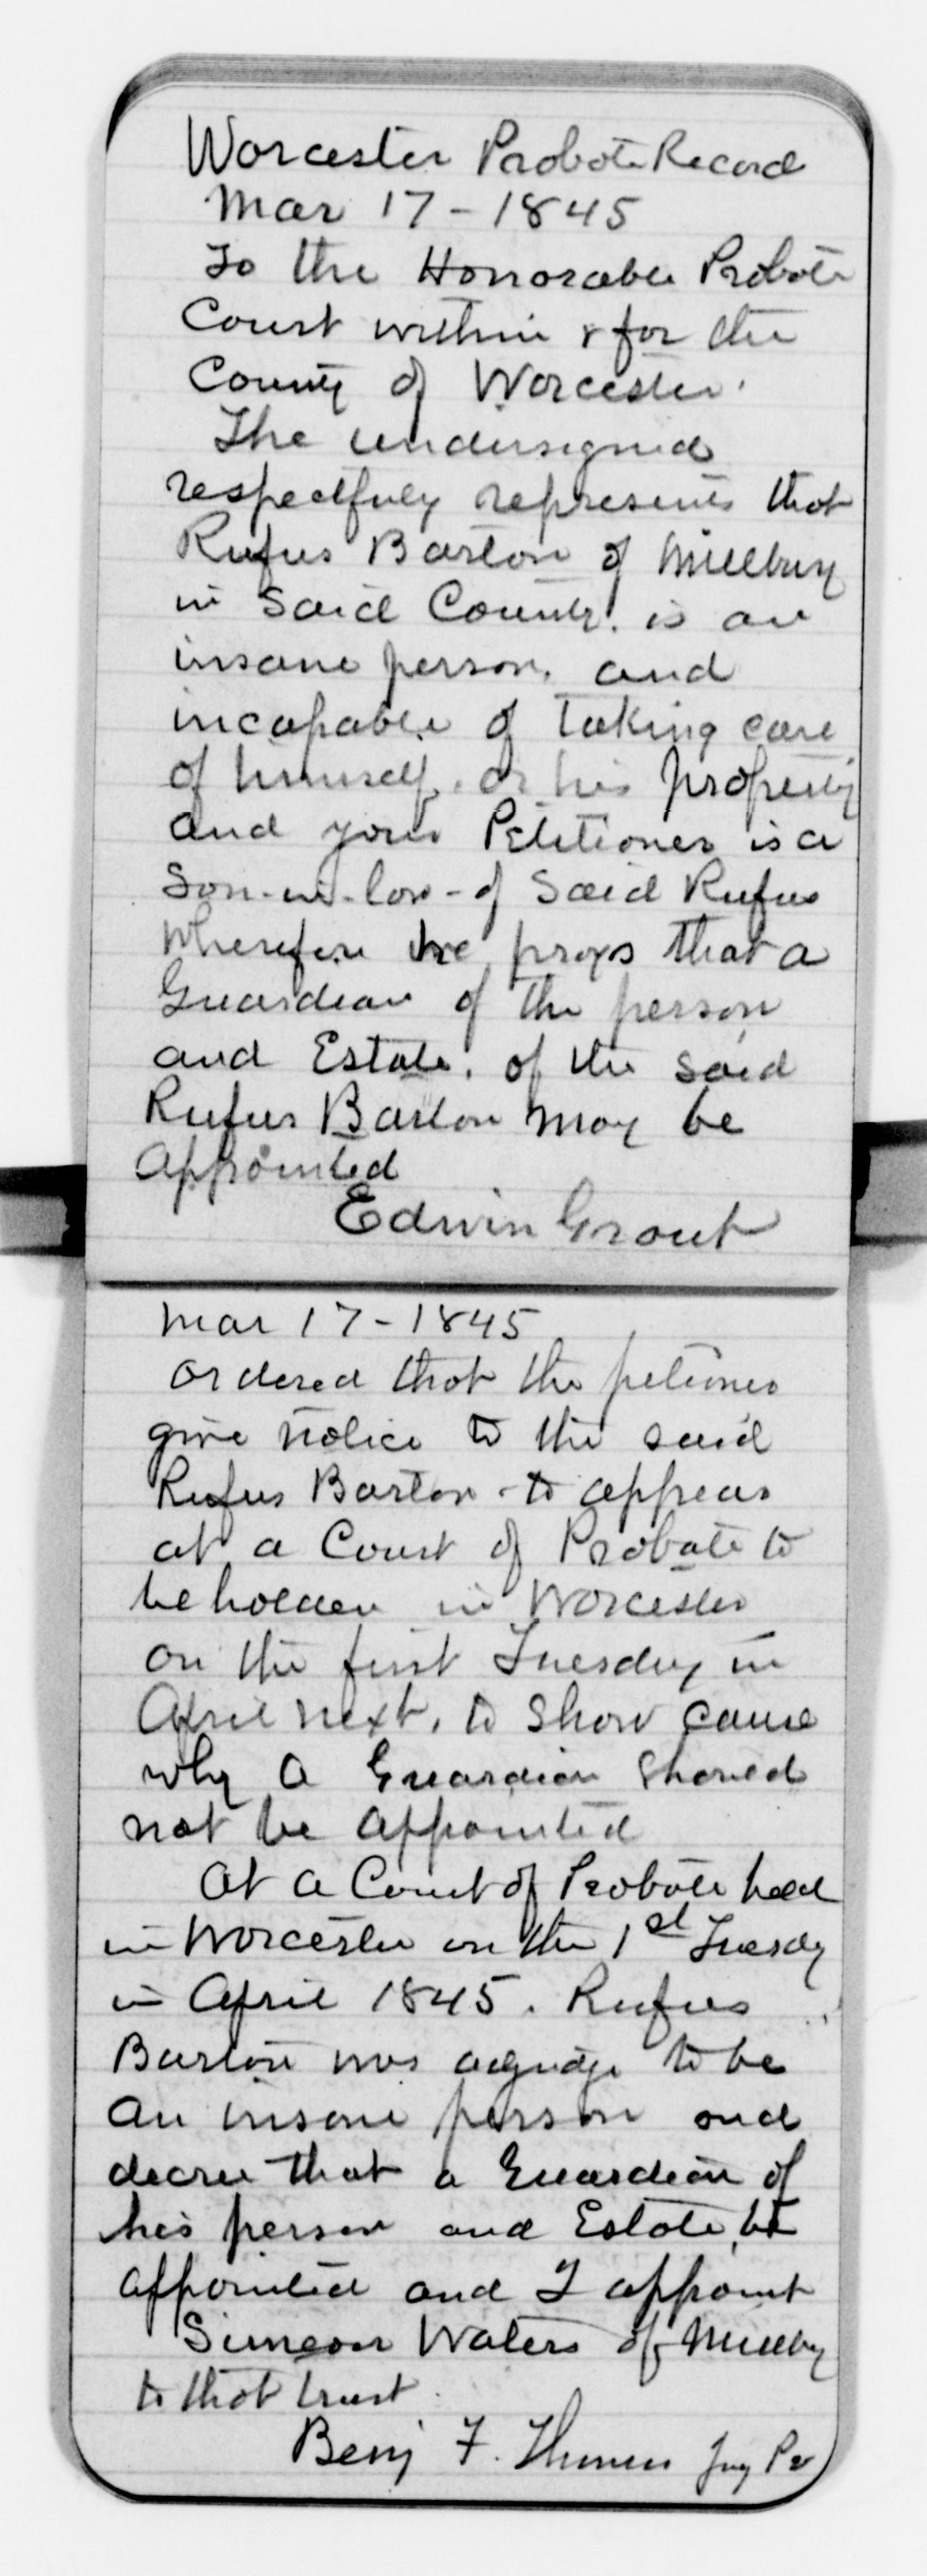 Worcester Probate Record
Mar 17 - 1845
To the Honorable Probate
Court within & for the
County of Worcester.
The undersigned
respectfuly represents that
Rufus Barton of Millbury
in Said County. is an
insane person, and
incapable of taking care
of himself, or his property
and your Petitioner is a
Son-in-law - of Said Rufus
Wherefore he prays that a
Guardian of the person
and Estate, of the said
Rufus Barton may be
appointed
Edwin Grout
Mar 17 - 1845
ordered that the petioner
give notice to the said
Rufus Barton - to appear
at a Court of Probate to
be holden in Worcester
on the first Tuesday in
April next, to show cause
why a Guardian should
not be appointed
At a Court of Probate held
in Worcester on the 1st Tuesdy
in April 1845. Rufus
Barton was adjudge to be
an insane person and
decree that a Guardian of
his person and Estate, be
appointed and I appoint
Simeon Waters of Millby
to that trust.
Benj F. Pr